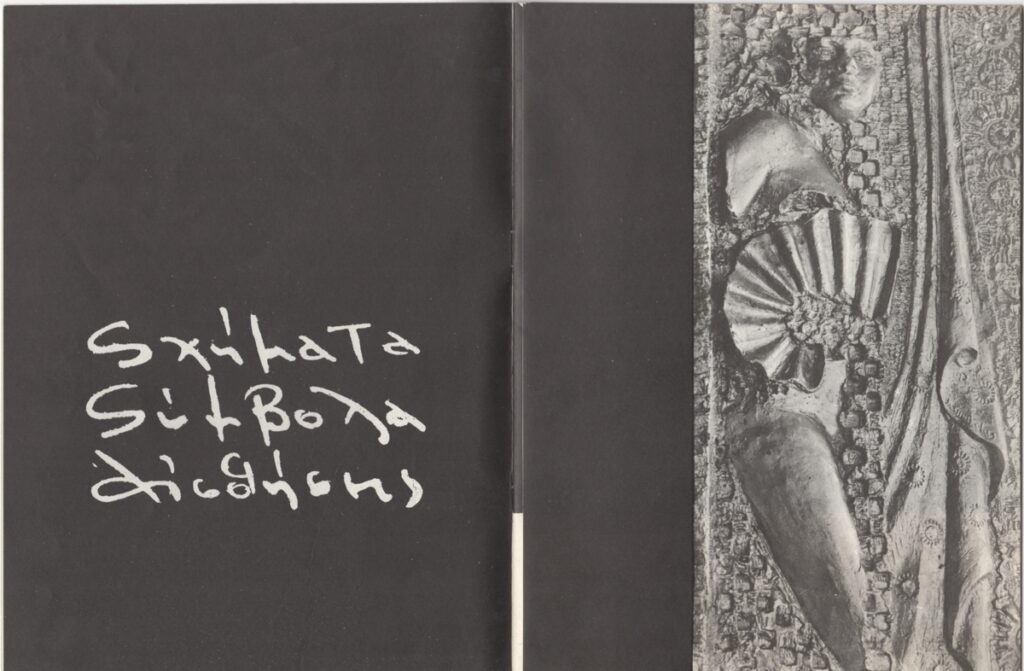 Σχήματα
Σύμβολα
Αἰσθήσης